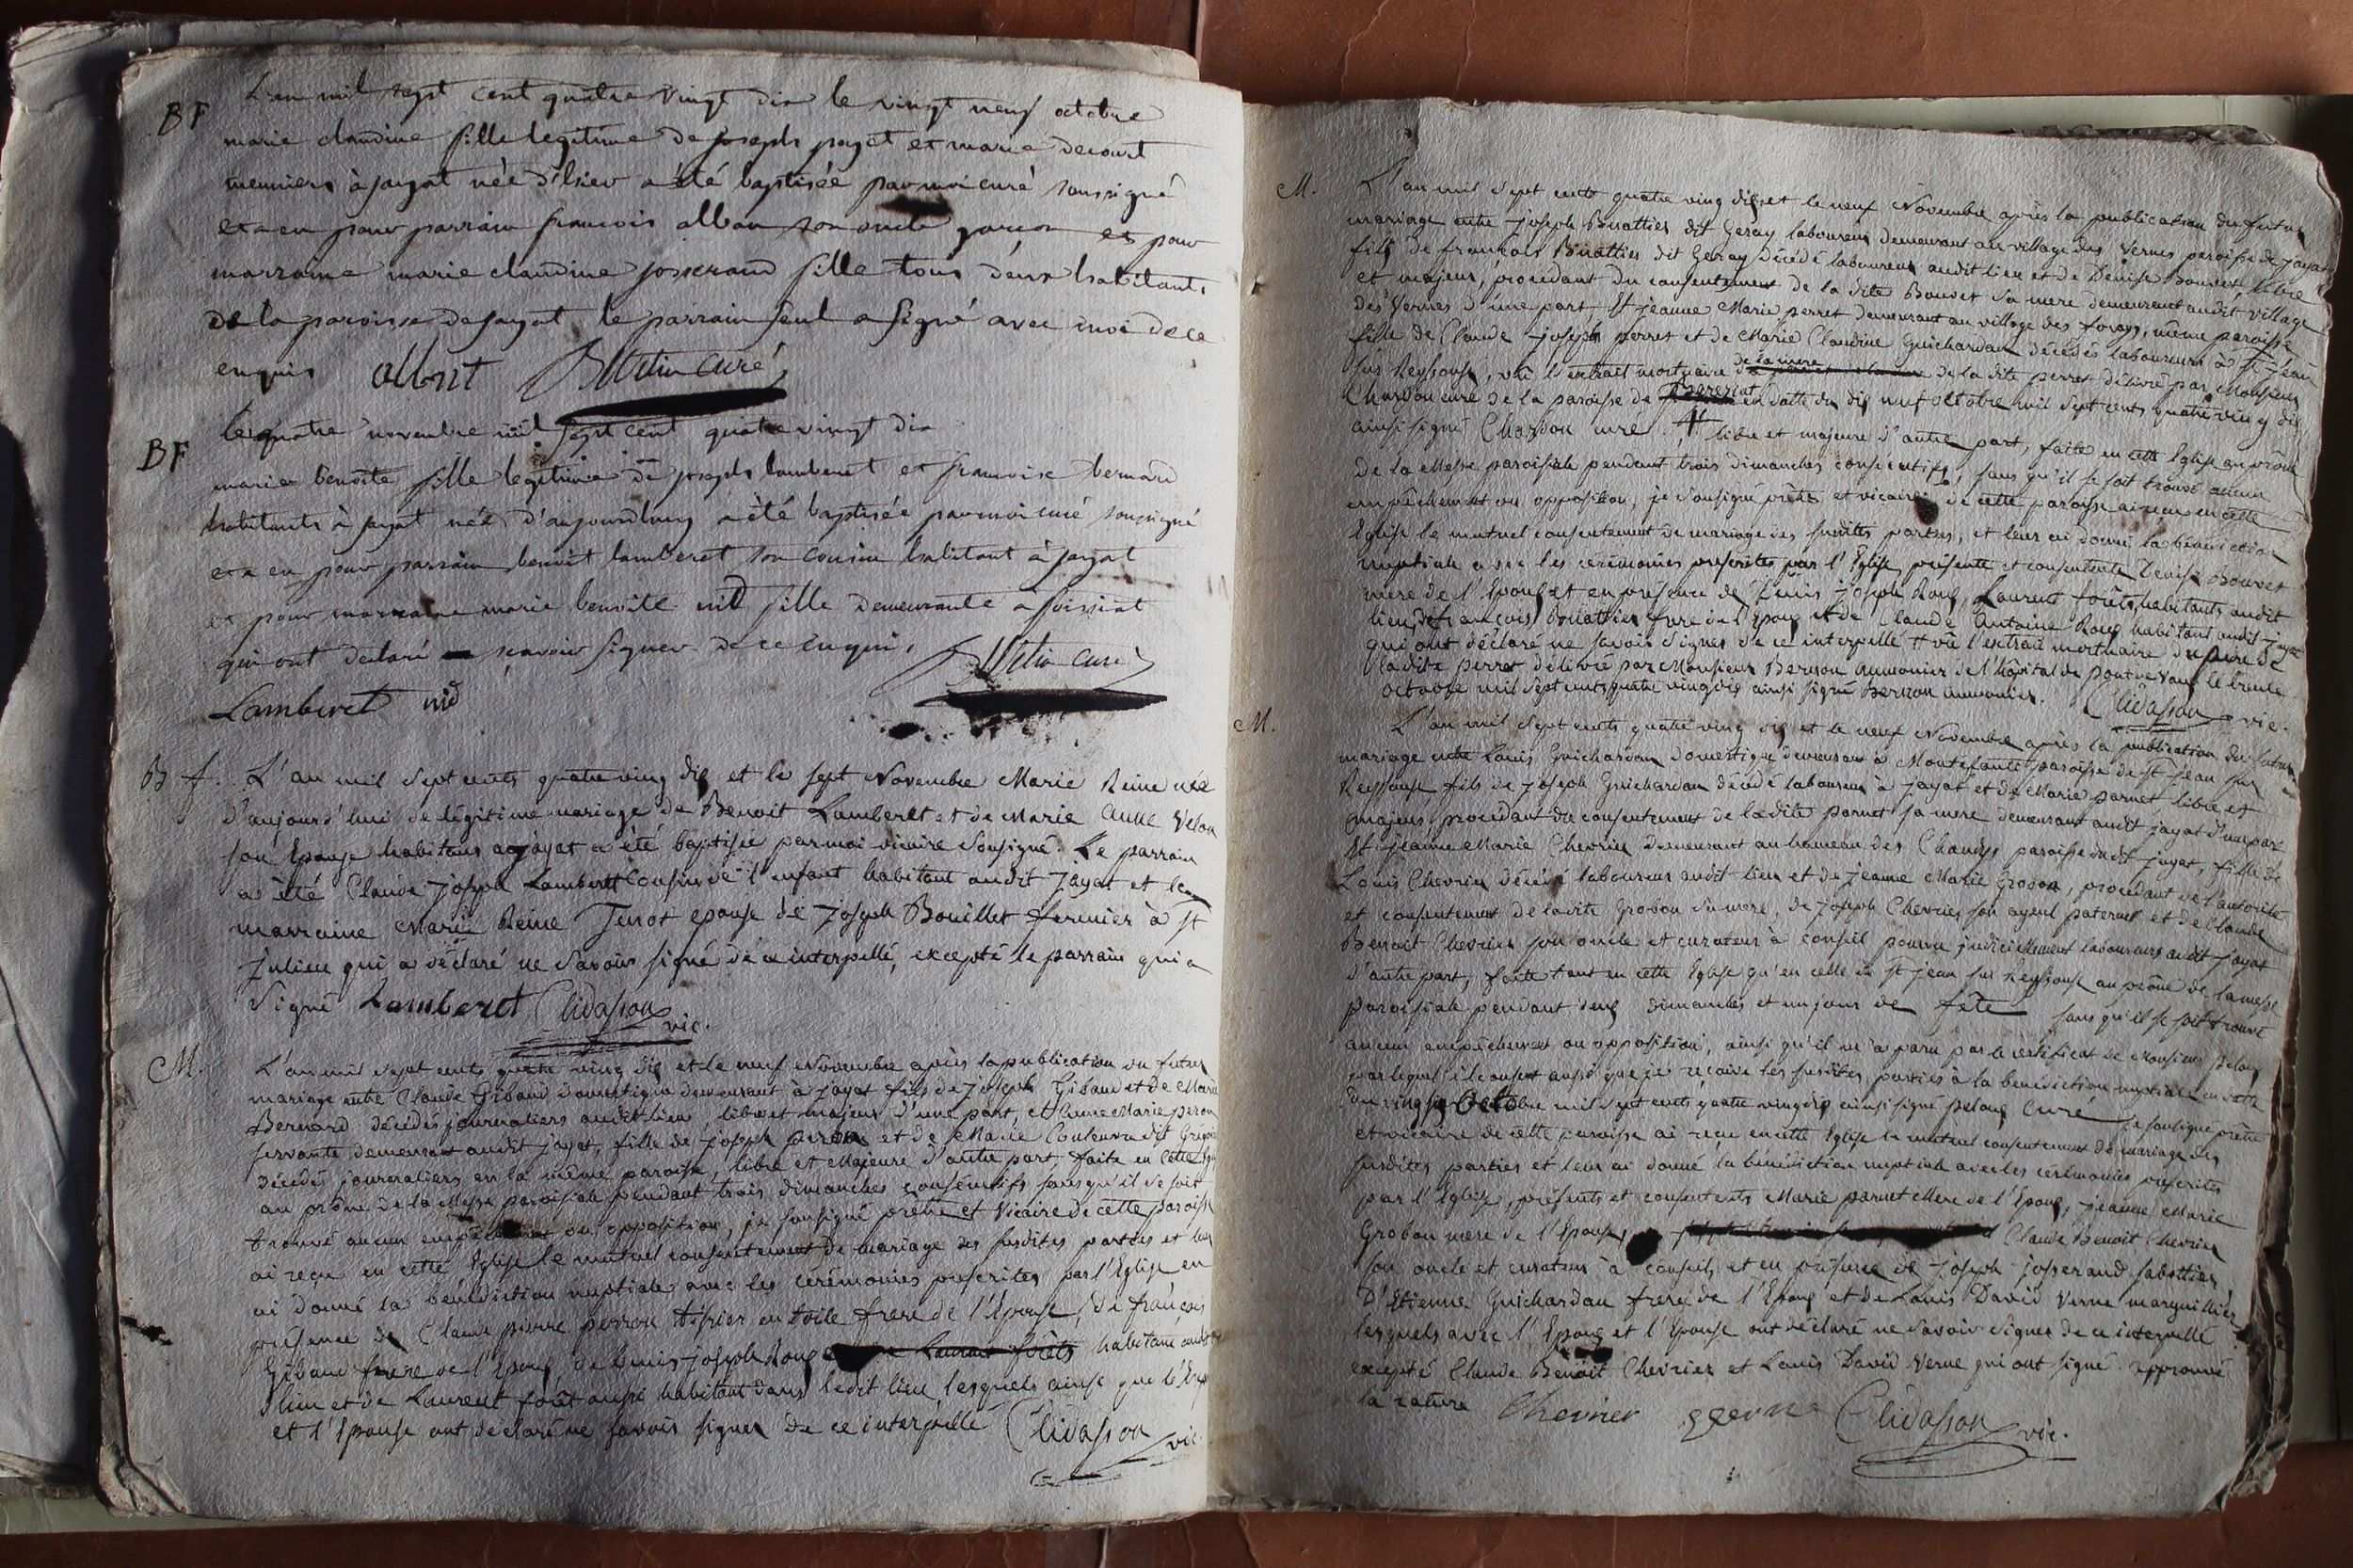 BF
L'an mil sept cent quatre vingt dix le vingt neuf octobre
marie claudine fille legitime de joseph payet et marie decourt
meuniers à jayat née d'hier a été baptisée par moi curé soussigné
et a eu pour parrain francois alban son oncle garçon et pour
marraine marie claudine josserand fille tous deux habitants
de la paroisse de jayat le parrain seul a signé avec moi de ce
enquis curé
BF
le quatre novembre mil sept cent quatre vingt dix
marie benoite fille legitime de joseph lamberet et francoise bernard
habitants à jayat née d'aujourdhuy a été baptisée par moi curé soussigné
et a eu pour parrain benoit lamberet son cousin habitant à jayat
et pour marraine marie benoite nid fille demeurante a foissiat
qui ont declaré scavoir signer de ce enquis, curé
Lamberet nid
B f. L'an mil sept cents quatre ving dix et le sept Novembre Marie Reine née
d'aujourd'hui de légitime mariage de Benoit Lamberet et de Marie Anne Velon
son Epouse habitans a jayat a été baptisée par moi vicaire Sousigné. Le parrain
a été Claude joseph Lamberet Cousin de l'enfant habitant audit Jayat et la
marraine Marie Reine Terrot epouse de joseph Bouillet fermier à St
julien qui a déclaré ne Savoir signé de ce interpellé, excepté le parrain qui a
Signé Lamberet Clidasson vic.
M. L'an mil sept cents quatre ving dix et le neuf Novembre après la publication du futur
mariage entre Claude Gibaud Domestique demeurant à jayat fils de joseph Gibaud et de Marie
Bernard décédés journaliers audit lieu libre et majeur d'une part, et Anne Marie peron
servante demeurant audit jayat, fille de joseph peron et de Marie Couleuvra dit
décédés journaliers en la même paroisse, libre et Majeure d'autre part, faite en Cette
au prône de la Messe paroissiale pendant trois dimanches consécutifs sans qu'il se soit
trouvé aucun ou opposition, je sousigné prêtre et Vicaire de cette paroisse
ai reçu en cette Eglise le mutuel consentement de mariage des susdites parties et leur
ai donné la bénédiction nuptiale avec les cérémonies prescrites par l'Eglise en
présence de Claude pierre perron tissier en toile frere de l'Epouse, de françois
Gibaud frere de l'Epoux de Denis joseph Roux Laurent forêts habitans
lieu et de Laurent forêt aussi habitant dans ledit lieu lesquels ainsi que
et l'Epouse ont déclaré ne savoir signer de ce interpellé Clidasson vic.
M. L'an mil sept cents quatre ving dix et le neuf Novembre après la publication du futur
mariage entre joseph Buattier dit Geray laboureur demeurant au village des Vernes paroisse de jayat
fils de francois Buattier dit Geray décédé laboureur audit lieu et de Denise Bouvet libre
et majeur, procédant du consentement de la dite Bouvet sa mere demeurant audit village
des Vernes d'une part et jeanne Marie perret demeurant au village des forays, même paroisse
fille de Claude joseph perret et de Marie Claudine Guichardan décédés laboureurs à St jean
sur Reyssouse, vû l'extrait mortuaire de la mere de la dite perret délivré par Monsieur
Chardon curé de la paroisse de en datte du dix neuf octobre mil sept cents quatre ving dix
ainsi signé Chardon curé. # libre et majeure d'autre part, faite en cette Eglise au prône
de la Messe paroissiale pendant trois dimanches consécutifs, sans qu'il se soit trouvé aucun
empêchement ou opposition, je sousigné prêtre et vicaire de cette paroisse ai reçu en cette
Eglise le mutuel consentement de mariage des susdites parties, et leur ai donné la bénédiction
nuptiale avec les cérémonies prescrites par l'Eglise, présente et consentente Denise Bouvet
mere de l'Epoux et en présence de Denis joseph Roux, Laurent forêts, habitants audit
lieu, de françois Buattier frere de l'Epoux et de Claude Antoine Roux habitant audit jayat
qui ont déclaré ne savoir signer de ce interpellé # vû l'extrait mortuaire du pere de
ladite perret délivré par Monsieur Berson Aumonier de l'hôpital de pont de Vaux le trente
octobre mil sept cents quatre vingt dix ainsi signé Berson aumonier. Clidasson vic.
M. L'an mil sept cents quatre ving dix et le neuf Novembre après la publication du futur
mariage entre Louis Guichardan domestique demeurant à Montefanti paroisse de St jean sur
Reyssouse, fils de joseph Guichardan décédé laboureur à jayat et de Marie parnet libre et
majeur, procédant du consentement de la dite parnet sa mere demeurant audit jayat d'une part
Et jeanne Marie Chevrier demeurant au hameau des paroisse dudit jayat, fille de
Louis Chevrier décédé laboureur audit lieu et de jeanne Marie Grobon, procédant de l'autorité
et consentement de ladite Grobon sa mere, de joseph Chevrier son ayeul paternel et de Claude
Benoit Chevrier son oncle et curateur à conseil pourvu judiciellement laboureurs audit jayat
d'autre part, faite tant en cette Eglise qu'en celle de St jean sur Reyssouse au prône de la messe
paroissiale pendant deux dimanches et un jour de fête sans qu'il se soit trouvé
aucun empêchement ou opposition, ainsi qu'il m'a paru par le certificat de Monsieur peloux
par lequel il consent aussi que je recoive les susdites parties à la bénédiction nuptiale en datte
du octobre mil sept cents quatre vingt dix ainsi signé peloux Curé je sousigné prêtre
et vicaire de cette paroisse ai reçu en cette Eglise le mutuel consentement de mariage des
susdites parties et leur ai donné la bénédiction nuptiale avec les cérémonies prescrites
par l'Eglise, présents et consentents Marie parnet Mere de l'Epoux, jeanne Marie
Grobon mere de l'Epouse, Claude Benoit Chevrier
son oncle et curateur à conseil, et en présence de joseph josserand sabottier
d'Etienne Guichardan frere de l'Epoux et de Louis David Verne marguillier
lesquels avec l'Epoux et l'Epouse ont déclaré ne Savoir signer de ce interpellé
excepté Claude Benoit Chevrier et Louis David Verne qui ont signé. approuvé
la rature Chevrier Clidasson vic.